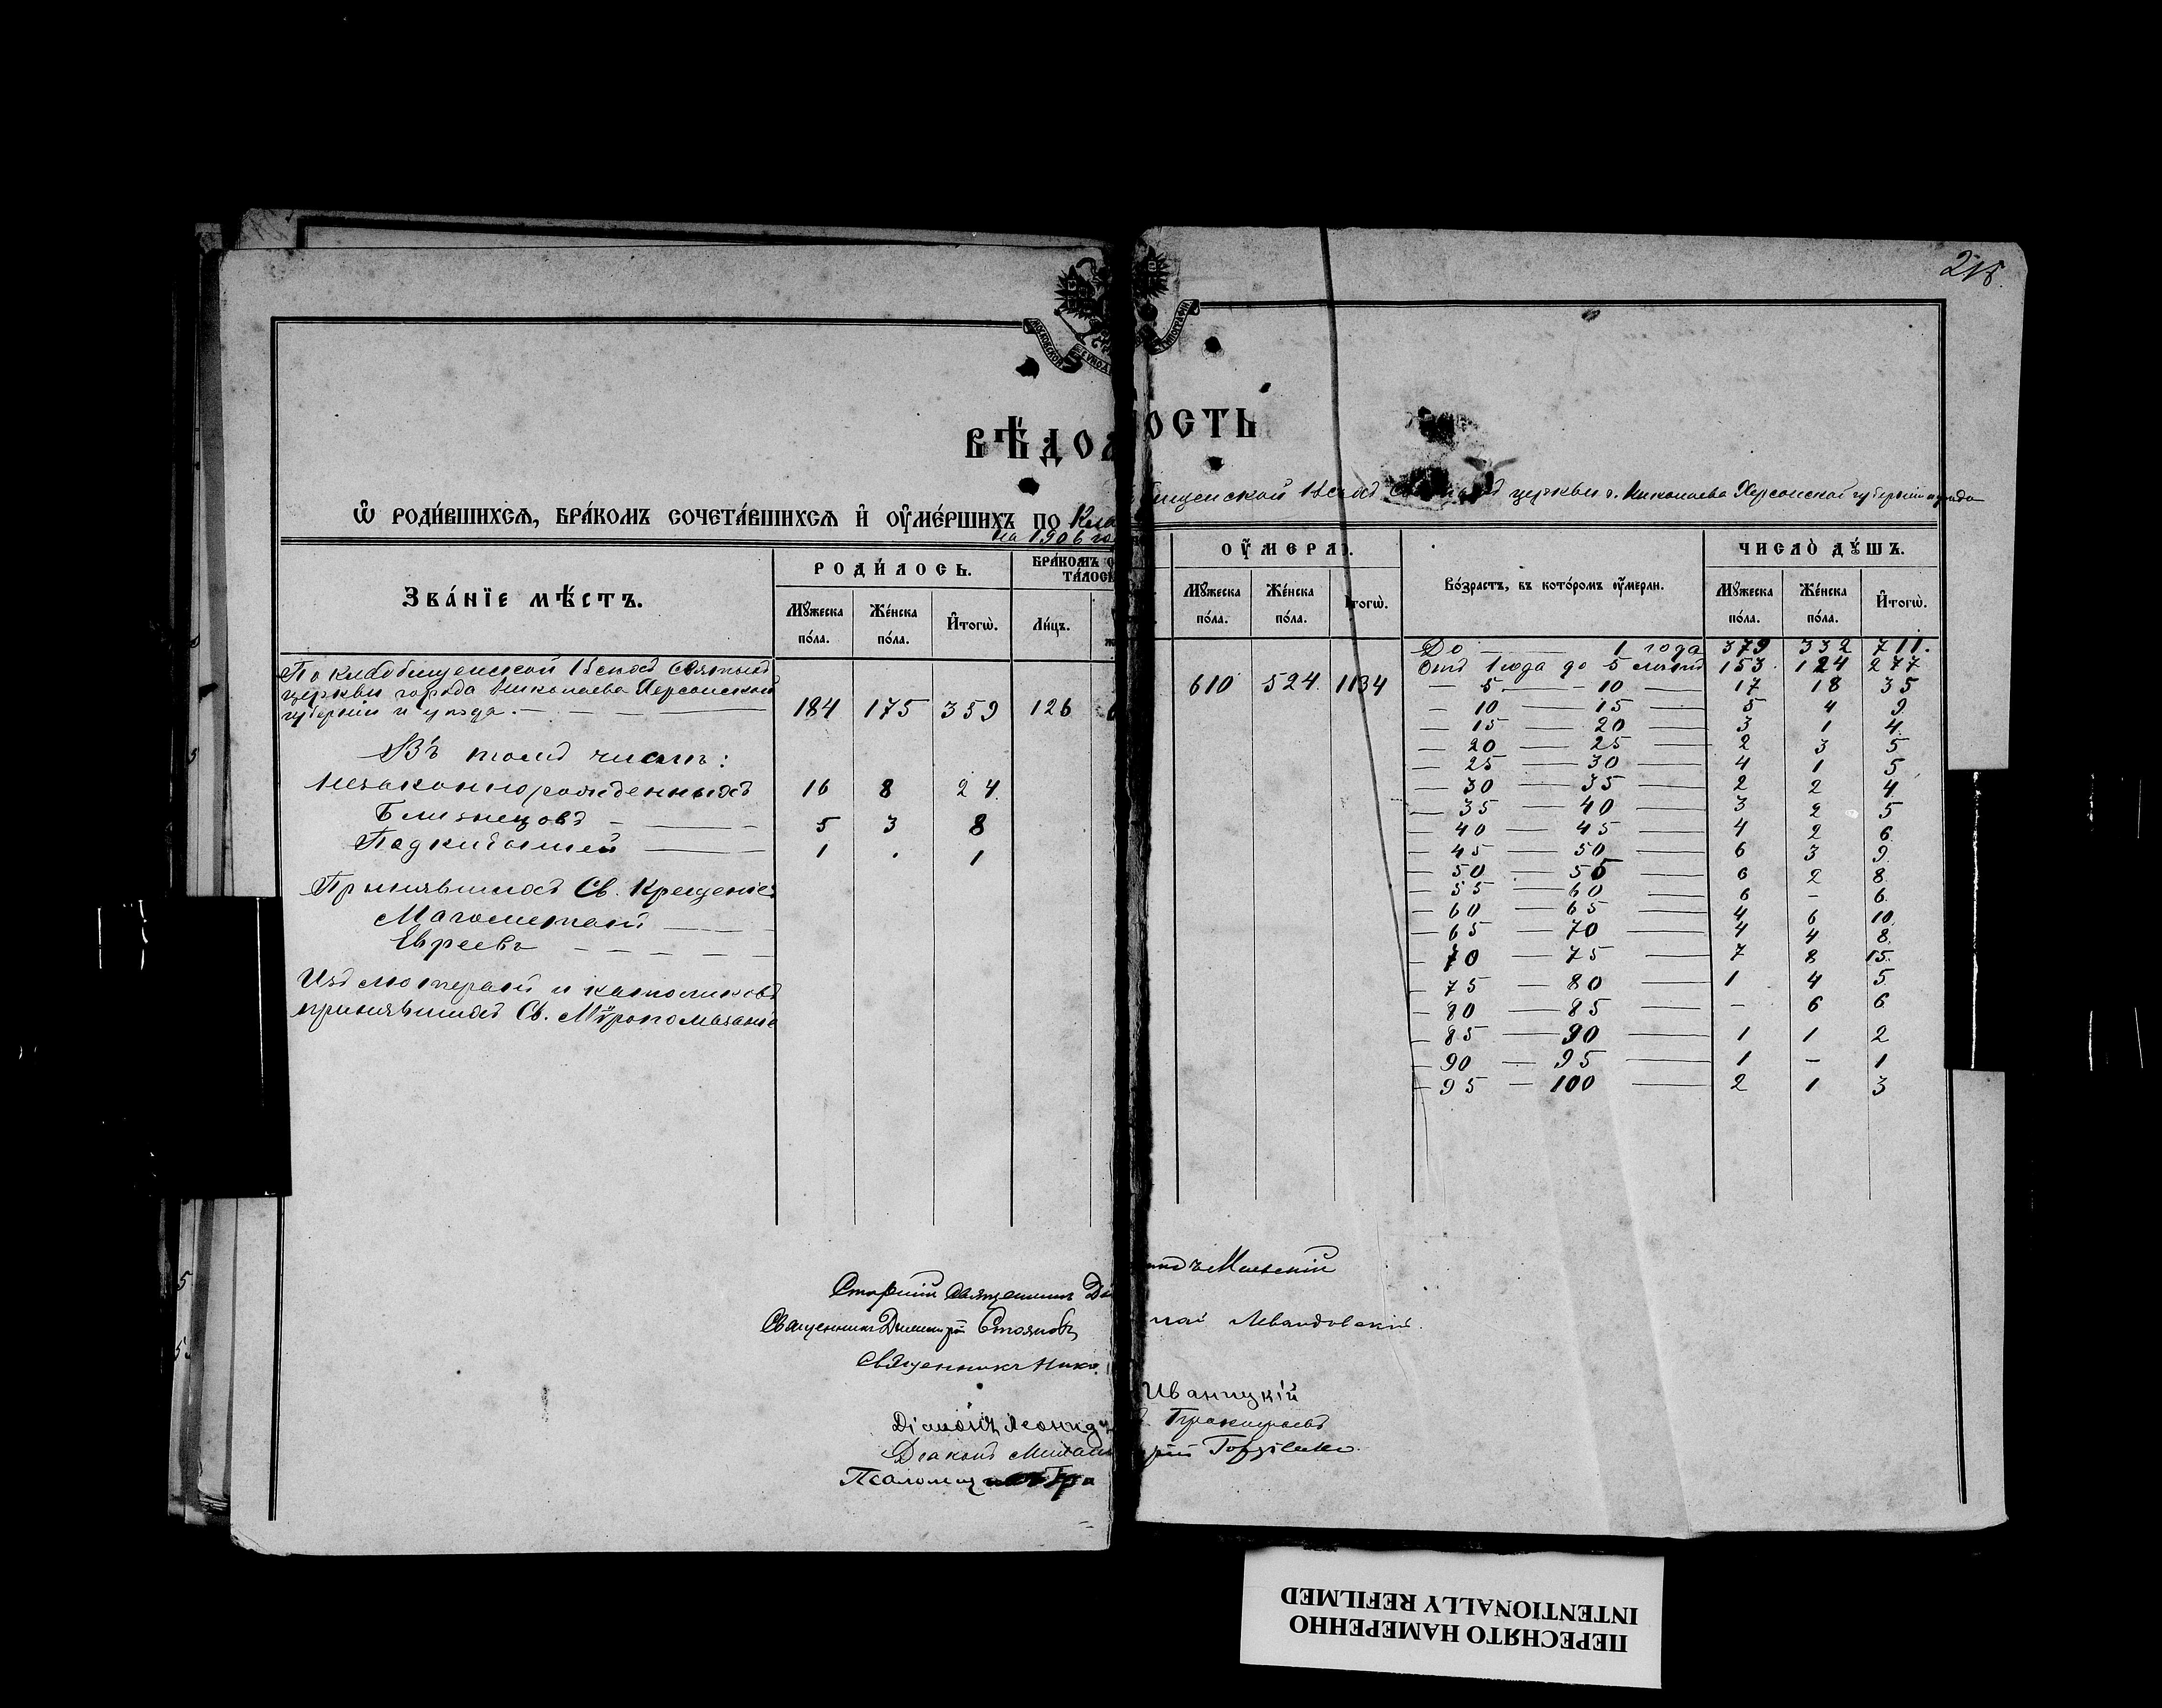 218.
МОСКОВСКОЙ СѴНОД ТИПОГРАФІИ
ВѢДОМОСТЬ
Ѡ РОДИВШИХСЯ, БРАКОМЪ СОЧЕТАВШИХСЯ И ОУМЕРШИХЪ ПО Кладбищенской Всѣхъ Святыхъ церкви г. Николаева Херсонской губерніи и уѣзда
на 1906 го
ЗВАНІЕ МѢСТЪ.
РОДИЛОСЬ.
БРАКОМЪ СО
ТАЛОСЬ
ОУМЕРЛО.
Возрастъ, въ которомъ оумерли.
ЧИСЛО ДУШЪ.
Мужеска пола.
Женска пола.
Итогѡ.
Лицъ.
Мужеска пола.
Женска пола.
Итогѡ.
Мужеска пола.
Женска пола.
Итогѡ.
По кладбищенской Всѣхъ Святыхъ
церкви города Николаева Херсонской
губерніи и уѣзда. — — — 184 175 359 126
610 524 1134
Въ томъ числѣ:
Незаконнорожденныхъ 16 8 24
Близнецовъ — — — 5 3 8
Подкидышей — — 1 . 1
Принявшихъ Св. Крещеніе:
Магометанъ — — —
Евреевъ — — — — —
Изъ лютеранъ и католиковъ
принявшихъ Св. Мѵропомазаніе
До — 1 года 379 332 711.
Отъ 1 года до 5 лѣтъ 153. 124 277
— 5 — 10 — 17 18 35
— 10 — 15 — 5 4 9.
— 15 — 20 — 3 1 4.
— 20 — 25 — 2 3 5
— 25 — 30 — 4 1 5
— 30 — 35 — 2 2 4.
— 35 — 40 — 3 2 5
— 40 — 45 — 4 2 6
— 45 — 50 — 6 3 9.
— 50 — 55 — 6 2 8.
— 55 — 60 — 6 — 6.
— 60 — 65 — 4 6 10.
— 65 — 70 — 4 4 8.
— 70 — 75 — 7 8 15.
— 75 — 80 — 1 4 5
— 80 — 85 — — 6 6
— 85 — 90 — 1 1 2
— 90 — 95 — 1 — 1
— 95 — 100 — 2 1 3
Старшій священникъ
Священникъ Димитрій Стояновъ
Священникъ Николай Левандовскій.
Діаконъ Леонидъ Иваницкій
Діаконъ Михаилъ
Псаломщикъ
ПЕРЕСНЯТО НАМЕРЕННО
INTENTIONALLY REFILMED